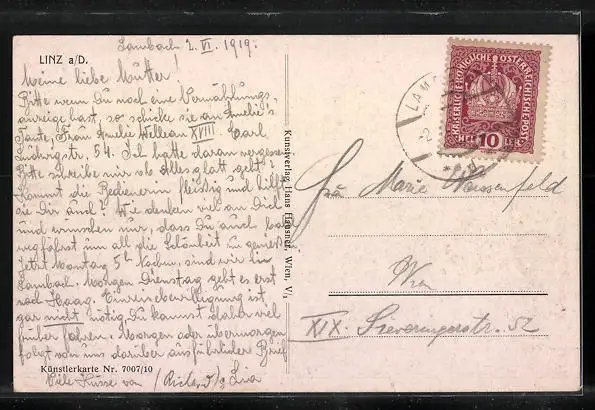 Lambach 2. VI. 1919.
LINZ a/D.
Meine liebe Mutter!
Bitte wenn Du noch eine Vermählungs-
anzeige hast, so schicke sie an Amelie's
Tante, Frau Amelie Welleau XVIII. Carl
Ludwigstr. 54. Ich hatte daran vergessen
Bitte schreibe mir ob Alles glatt geht?
Kommt die Bedienerin fleissig und hilft
sie Dir auch? Wir denken viel an Dich
und wünschen nur, dass Du auch bald
wegfährst um all die Schönheit zu geniessen
Jetzt Montag 5h Nachm. sind wir in
Lambach. Morgen Dienstag geht es erst
nach Haag. Einreisebewilligung ist
gar nicht nötig. Du kannst daher viel
früher fahren. Morgen oder übermorgen
folgt von uns darüber ausführlicher Brief
Künstlerkarte Nr. 7007/10
Viele Küsse von
Kunstverlag Hans Hausner, Wien, V/1
KAISERLICHE KÖNIGLICHE ÖSTERREICHISCHE POST
HELLER
10
LAMB
Marie Weissenfeld
Wien
XIX. Sieveringerstr. 52